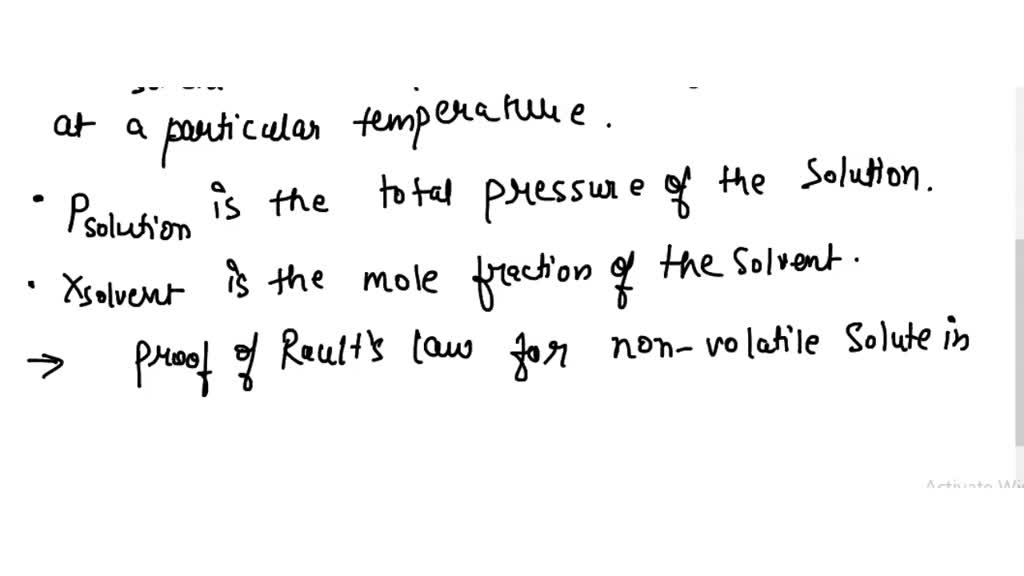 at a particular temperature.
• Psolution is the total pressure of the solution.
• Xsolvent is the mole fraction of the solvent.
→ Proof of Rault's law for non-volatile Solute in